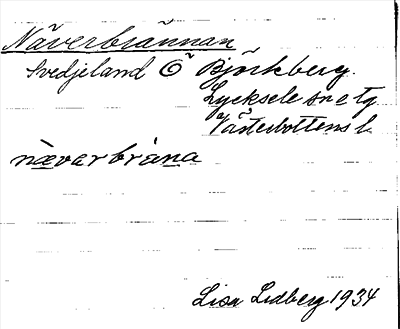 Näverbrännan
Svedjeland Ö Björkberg.
Lycksele sn o tg
Västerbottens l.
nævarbràna
Lisa Lidberg 1934